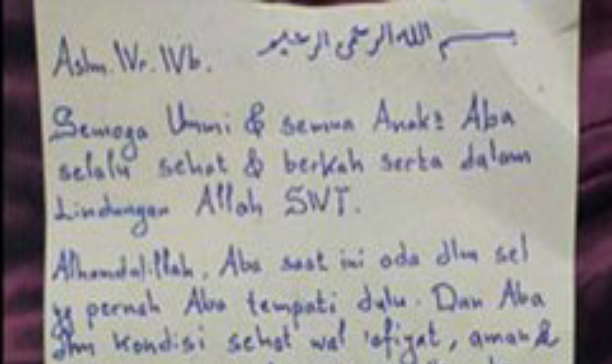 Aslm. Wr. Wb. بسم الله الرحمن الرحيم
Semoga Ummi & semua Anak² Aba
selalu sehat & berkah serta dalam
Lindungan Allah SWT.
Alhamdulillah, Aba saat ini ada dlm sel
yg pernah Aba tempati dulu. Dan Aba
dlm kondisi sehat wal 'afiyat, aman &